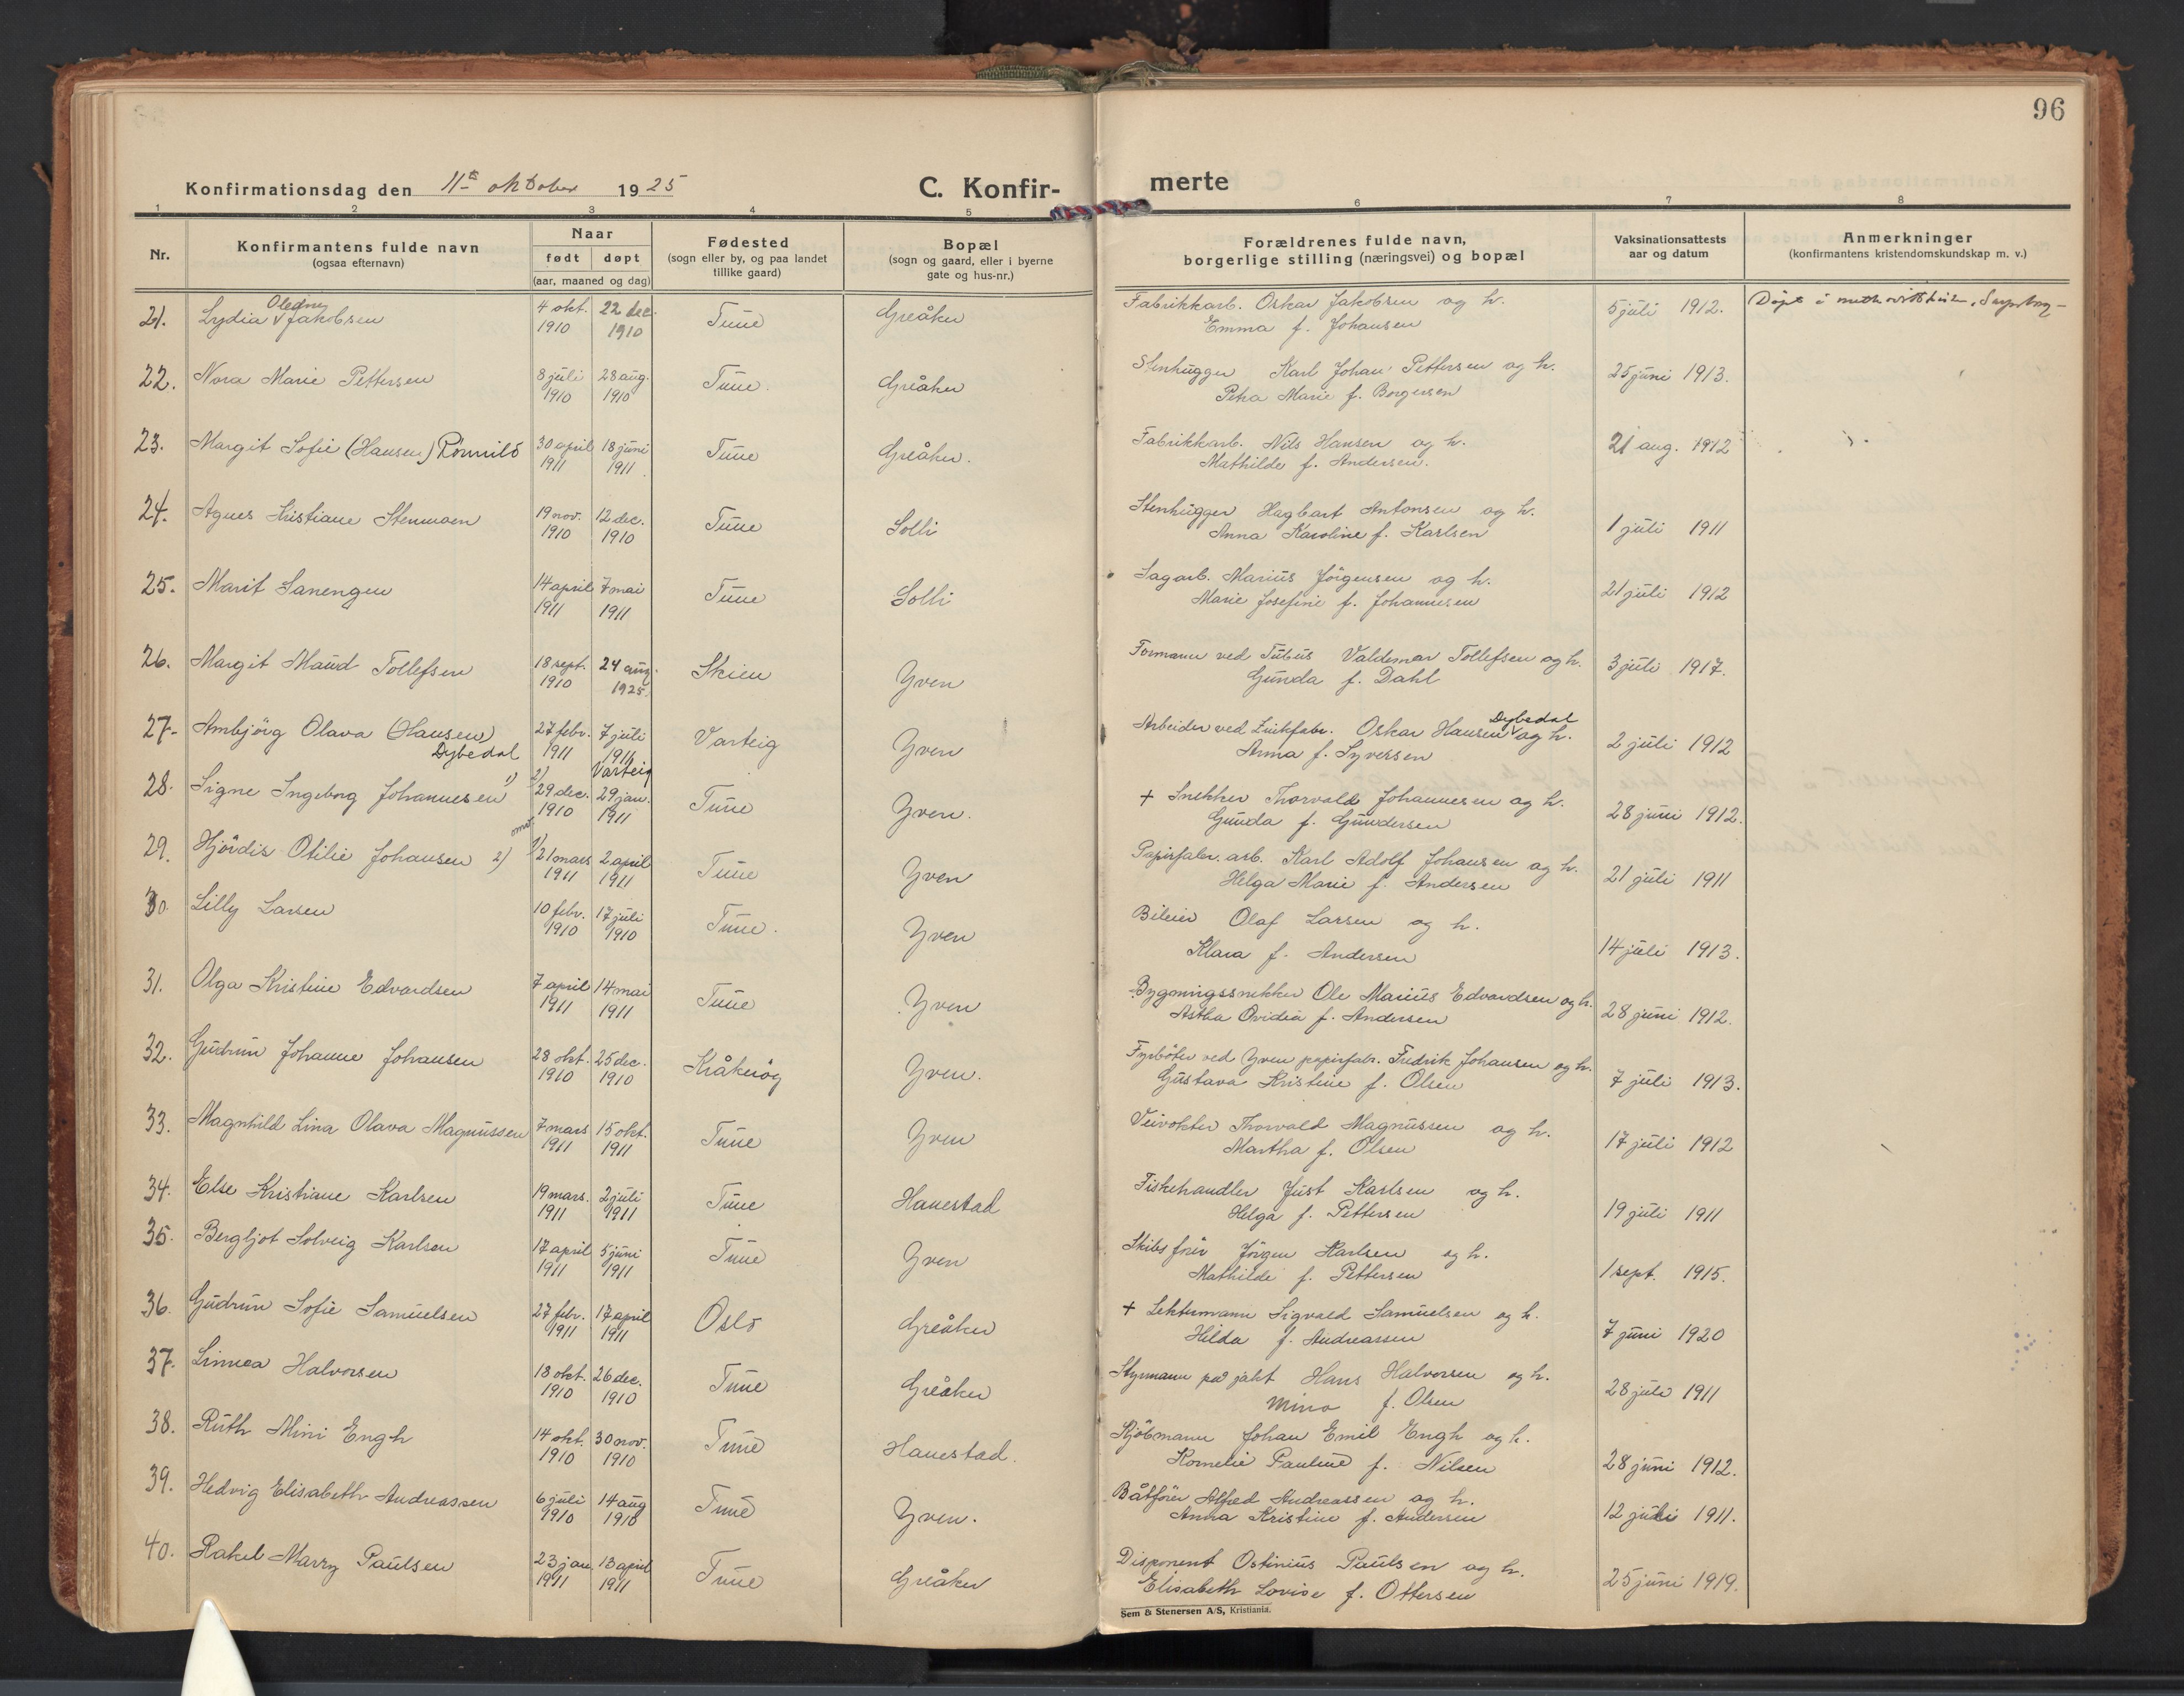 96
Konfirmationsdag den 11te oktober 1925
C. Konfir- merte
1 2 3 4 5 6 7 8
Nr.
Konfirmantens fulde navn
(ogsaa efternavn)
Naar
født døpt
(aar, maaned og dag)
Fødested
(sogn eller by, og paa landet
tillike gaard)
Bopæl
(sogn og gaard, eller i byerne
gate og hus-nr.)
Forældrenes fulde navn,
borgerlige stilling (næringsvei) og bopæl
Vaksinationsattests
aar og datum
Anmerkninger
(konfirmantens kristendomskundskap m. v.)
Oledny
21. Lydia Jakobsen 4 okt. 22 dec. Tune Greåker Fabrikkarb. Oskar Jakobsen og h. 5 juli 1912. Døpt i
1910 1910 Emma f. Johansen
22. Nora Marie Pettersen 8 juli 28 aug. Tune. Greåker Stenhugger Karl Johan Pettersen og h. 25 juni 1913.
1910 1910 Petra Marie f. Borgersen
23. Margit Sofie (Hansen) Römuld 30 april 18 juni Tune Greåker. Fabrikkarb. Nils Hansen og h. 21 aug. 1912
1911 1911 Mathilde f. Andersen.
24. Agnes Kristiane Stenmoen 19 nov. 12 dec. Tune Solli Stenhugger Hagbart Antonsen og h. 1 juli 1911
1910 1910 Anna Karoline f. Karlsen
25. Marit Sanengen 14 april 7 mai Tune Solli Sagarb. Marius Jörgensen og h. 21 juli 1912
1911 1911 Marie Josefine f. Johannesen
26. Margit Maud Tollefsen 18 sept. 24 aug. Skien Yven Formann ved Tubus Valdemar Tollefsen og h. 3 juli 1917.
1910 1925. Gunda f. Dahl
27. Ambjörg Olava (Hansen) 27 febr. 7 juli Varteig Yven Arbeider ved Zinkfabr. Oskar Hansen Dybedal og h. 2 juli 1912
Dybedal 1911 1911 Anna f. Syversen
Varteig
28. Signe Ingeborg Johannesen 1) 2) 29 dec. 29 jan. Tune Yven. + Snekker Thorvald Johannesen og h. 28 juni 1912.
1910 1911 Gunda f. Gundersen
29. Hjördis Otilie Johansen 2) 1) 21 mars 2 april Tune Yven Papirfabr. arb. Karl Adolf Johansen og h. 21 juli 1911
1911 1911 Helga Marie f. Andersen
30. Lilly Larsen 10 febr. 17 juli Tune. Yven Bileier Olaf Larsen og h. 14 juli 1913.
1910 1910 Klara f. Andersen
31. Olga Kristine Edvardsen 7 april 14 mai Tune Yven Bygningssnekker Ole Marius Edvardsen og h. 28 juni 1912.
1911 1911 Astha Ovidia f. Andersen
32. Gudrun Johanne Johansen 28 okt. 25 dec. Kråkeröy Yven. Fyrböter ved Yven papirfabr. Fredrik Johansen og h. 7 juli 1913.
1910 1910 Gustava Kristine f. Olsen
33. Magnhild Lina Olava Magnussen 7 mars 15 okt. Tune Yven Veivokter Thorvald Magnussen og h. 17 juli 1912
1911 1911 Martha f. Olsen
34. Else Kristiane Karlsen 19 mars. 2 juli Tune Hanestad Fiskehandler Just Karlsen og h. 19 juli 1911
1911 1911 Helga f. Pettersen
35. Bergljot Solveig Karlsen 17 april 5 juni Tune Yven Skibsförer Jörgen Karlsen og h. 1 sept. 1915.
1911 1911 Mathilde f. Pettersen
36. Gudrun Sofie Samuelsen 27 febr. 17 april Oslo Greåker + Lektermann Sigvald Samuelsen og h. 7 juni 1920
1911 1911 Hilda f. Andreassen
37. Linnea Halvorsen 18 okt. 26 dec. Tune Greåker Styrmann på jakt Hans Halvorsen og h. 28 juli 1911
1910 1910 Mina f. Olsen
38. Ruth Mini Engh 14 okt. 30 nov. Tune Hanestad. Kjöbmann Johan Emil Engh og h. 28 juni 1912.
1910 1910 Kornelie Pauline f. Nilsen
39. Hedvig Elisabeth Andreassen 6 juli 14 aug Tune Yven. Båtförer Alfred Andreassen og h. 12 juli 1911.
1910 1910 Anna Kristine f. Andersen
40. Rakel Marry Paulsen 23 jan. 13 april Tune Greåker Disponent Ostinius Paulsen og h. 25 juni 1919.
1911 1911 Elisabeth Lovise f. Ottersen
Sem & Stenersen A/S, Kristiania.